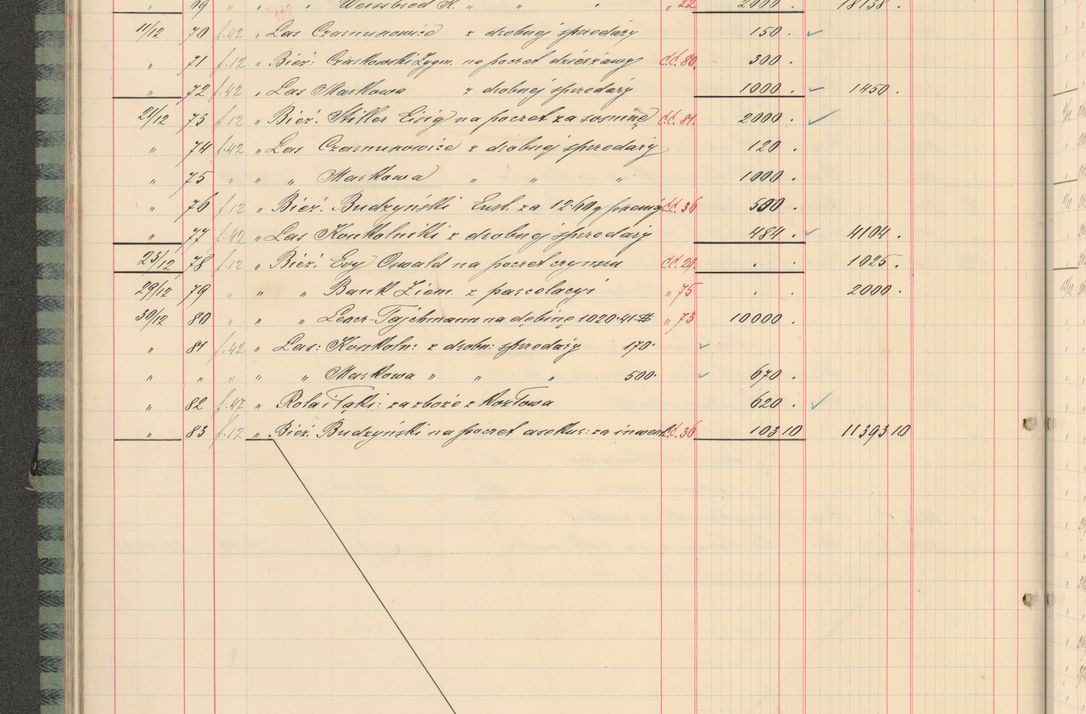 " 69 " " " Weissbrod K. " " " " 22 2000 . 18138 .
11/12 70 f.42 " Las Czarnunowice z drobnej sprzedaży 150 .
" 71 f.12 " Bież: na poczet dzierżawy cd. 80. 300 .
" 72 f.42 " Las Markowa z drobnej sprzedaży 1000 . 1450 .
21/12 73 f.12 " Bież: na poczet za sosninę cd. 81. 2000 .
" 74 f.42 " Las Czarnunowice z drobnej sprzedaży 120 .
" 75 " " " Markowa " " " 1000 .
" 76 f.12 " Bież: Budzyński Eust. za cd. 36 500 .
" 77 f.42 " Las Konkolniki z drobnej sprzedaży 484 . 4104 .
23/12 78 f.12 " Bież: Ewy Oswald na poczet czynszu cd. 29. . . 1025 .
29/12 79 " " " Bank Ziem. z parcelacyi " 75 . . 2000 .
30/12 80 " " " na dębinę " 73 10000 .
" 81 f.42 " Las: Konkoln: z drobn: sprzedaży 170.
" " " " " Markowa " " " 500. 670 .
" 82 f.47 " Rola i Łąki: za zboże z Kozłowa 620 .
" 83 f.12 " Bież. Budzyński na poczet asekur: za inwent. cd. 36 103 10 11393 10